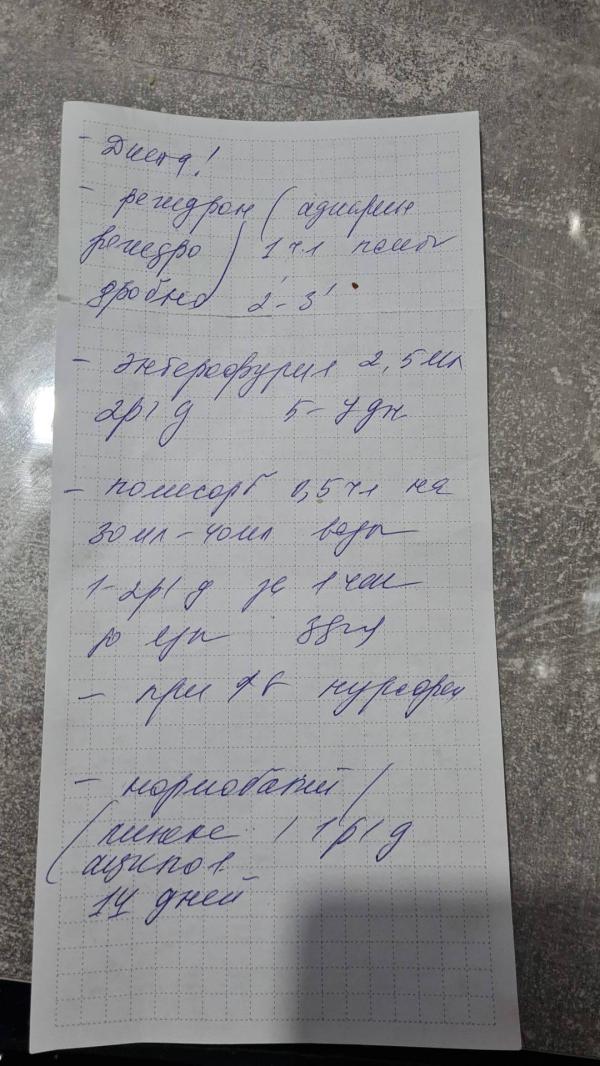 - Диета!
- регидрон ( адиарин
регидро ) 1 чл поить
дробно 2'-3'
- энтерофурил 2,5 мл
2р/д 5-7 дн
- полисорб 0,5 чл на
30 мл-40 мл воды
1-2р/д за 1 час
до еды
- при нурофен
- нормобакт /
( линекс / 1р/д
аципол
14 дней